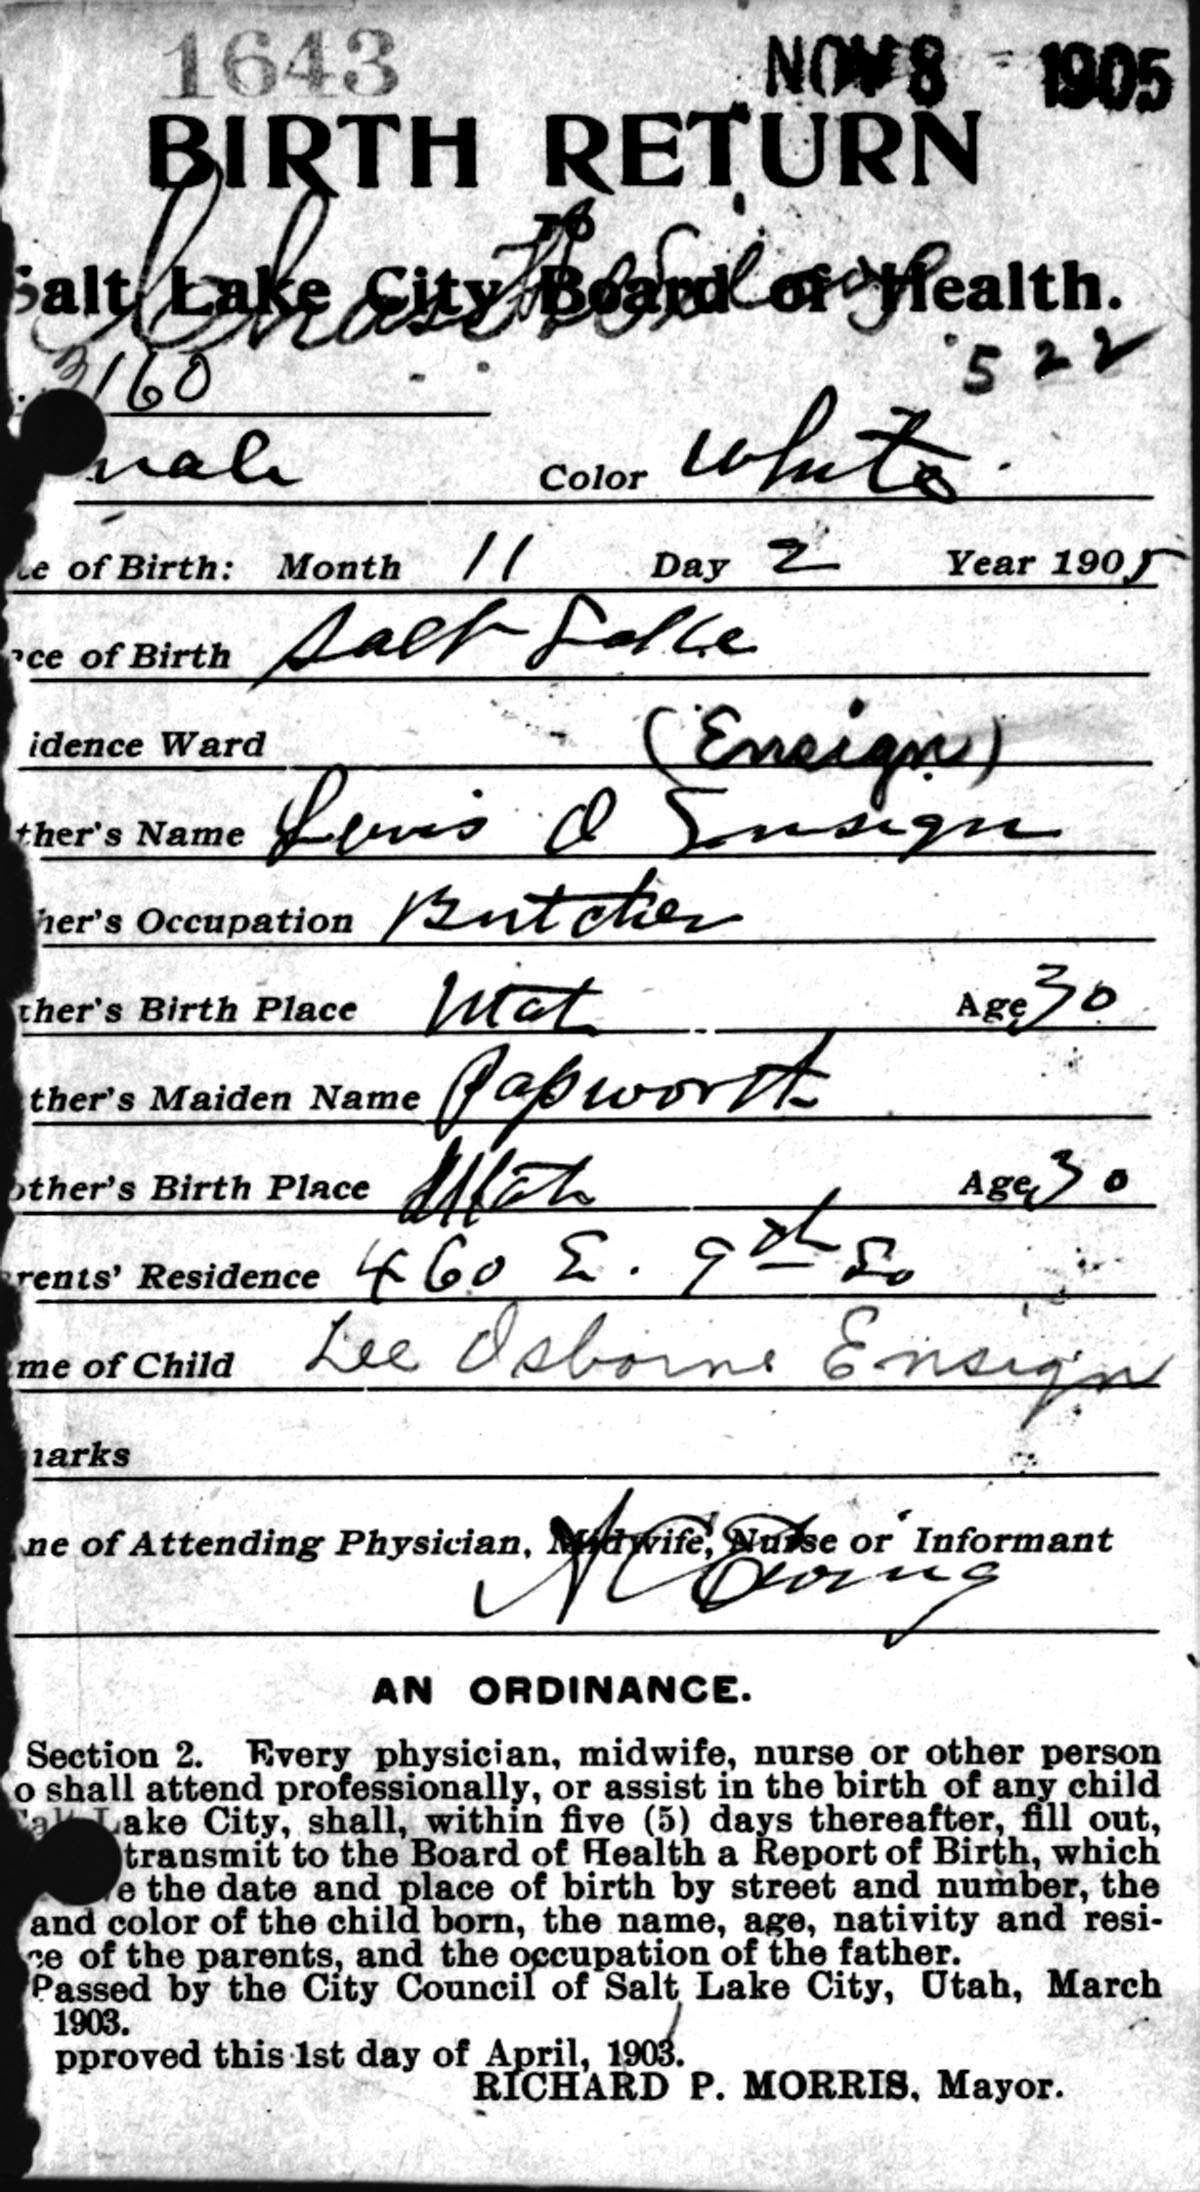 1643 NOV 8 1905
BIRTH RETURN
TO
Salt Lake City Board of Health.
3160 522
male Color White
te of Birth: Month 11 Day 2 Year 1905
ce of Birth Salt Lake
idence Ward (Ensign)
ther's Name Lewis O Ensign
her's Occupation Butcher
ther's Birth Place Utah Age 30
ther's Maiden Name Papworth
other's Birth Place Utah Age 30
rents' Residence 460 E. 9th So
me of Child Lee Osborne Ensign
marks
me of Attending Physician, Midwife, Nurse or Informant
Young
AN ORDINANCE.
Section 2. Every physician, midwife, nurse or other person
o shall attend professionally, or assist in the birth of any child
Salt Lake City, shall, within five (5) days thereafter, fill out,
transmit to the Board of Health a Report of Birth, which
e the date and place of birth by street and number, the
and color of the child born, the name, age, nativity and resi-
ce of the parents, and the occupation of the father.
Passed by the City Council of Salt Lake City, Utah, March
1903.
pproved this 1st day of April, 1903.
RICHARD P. MORRIS, Mayor.